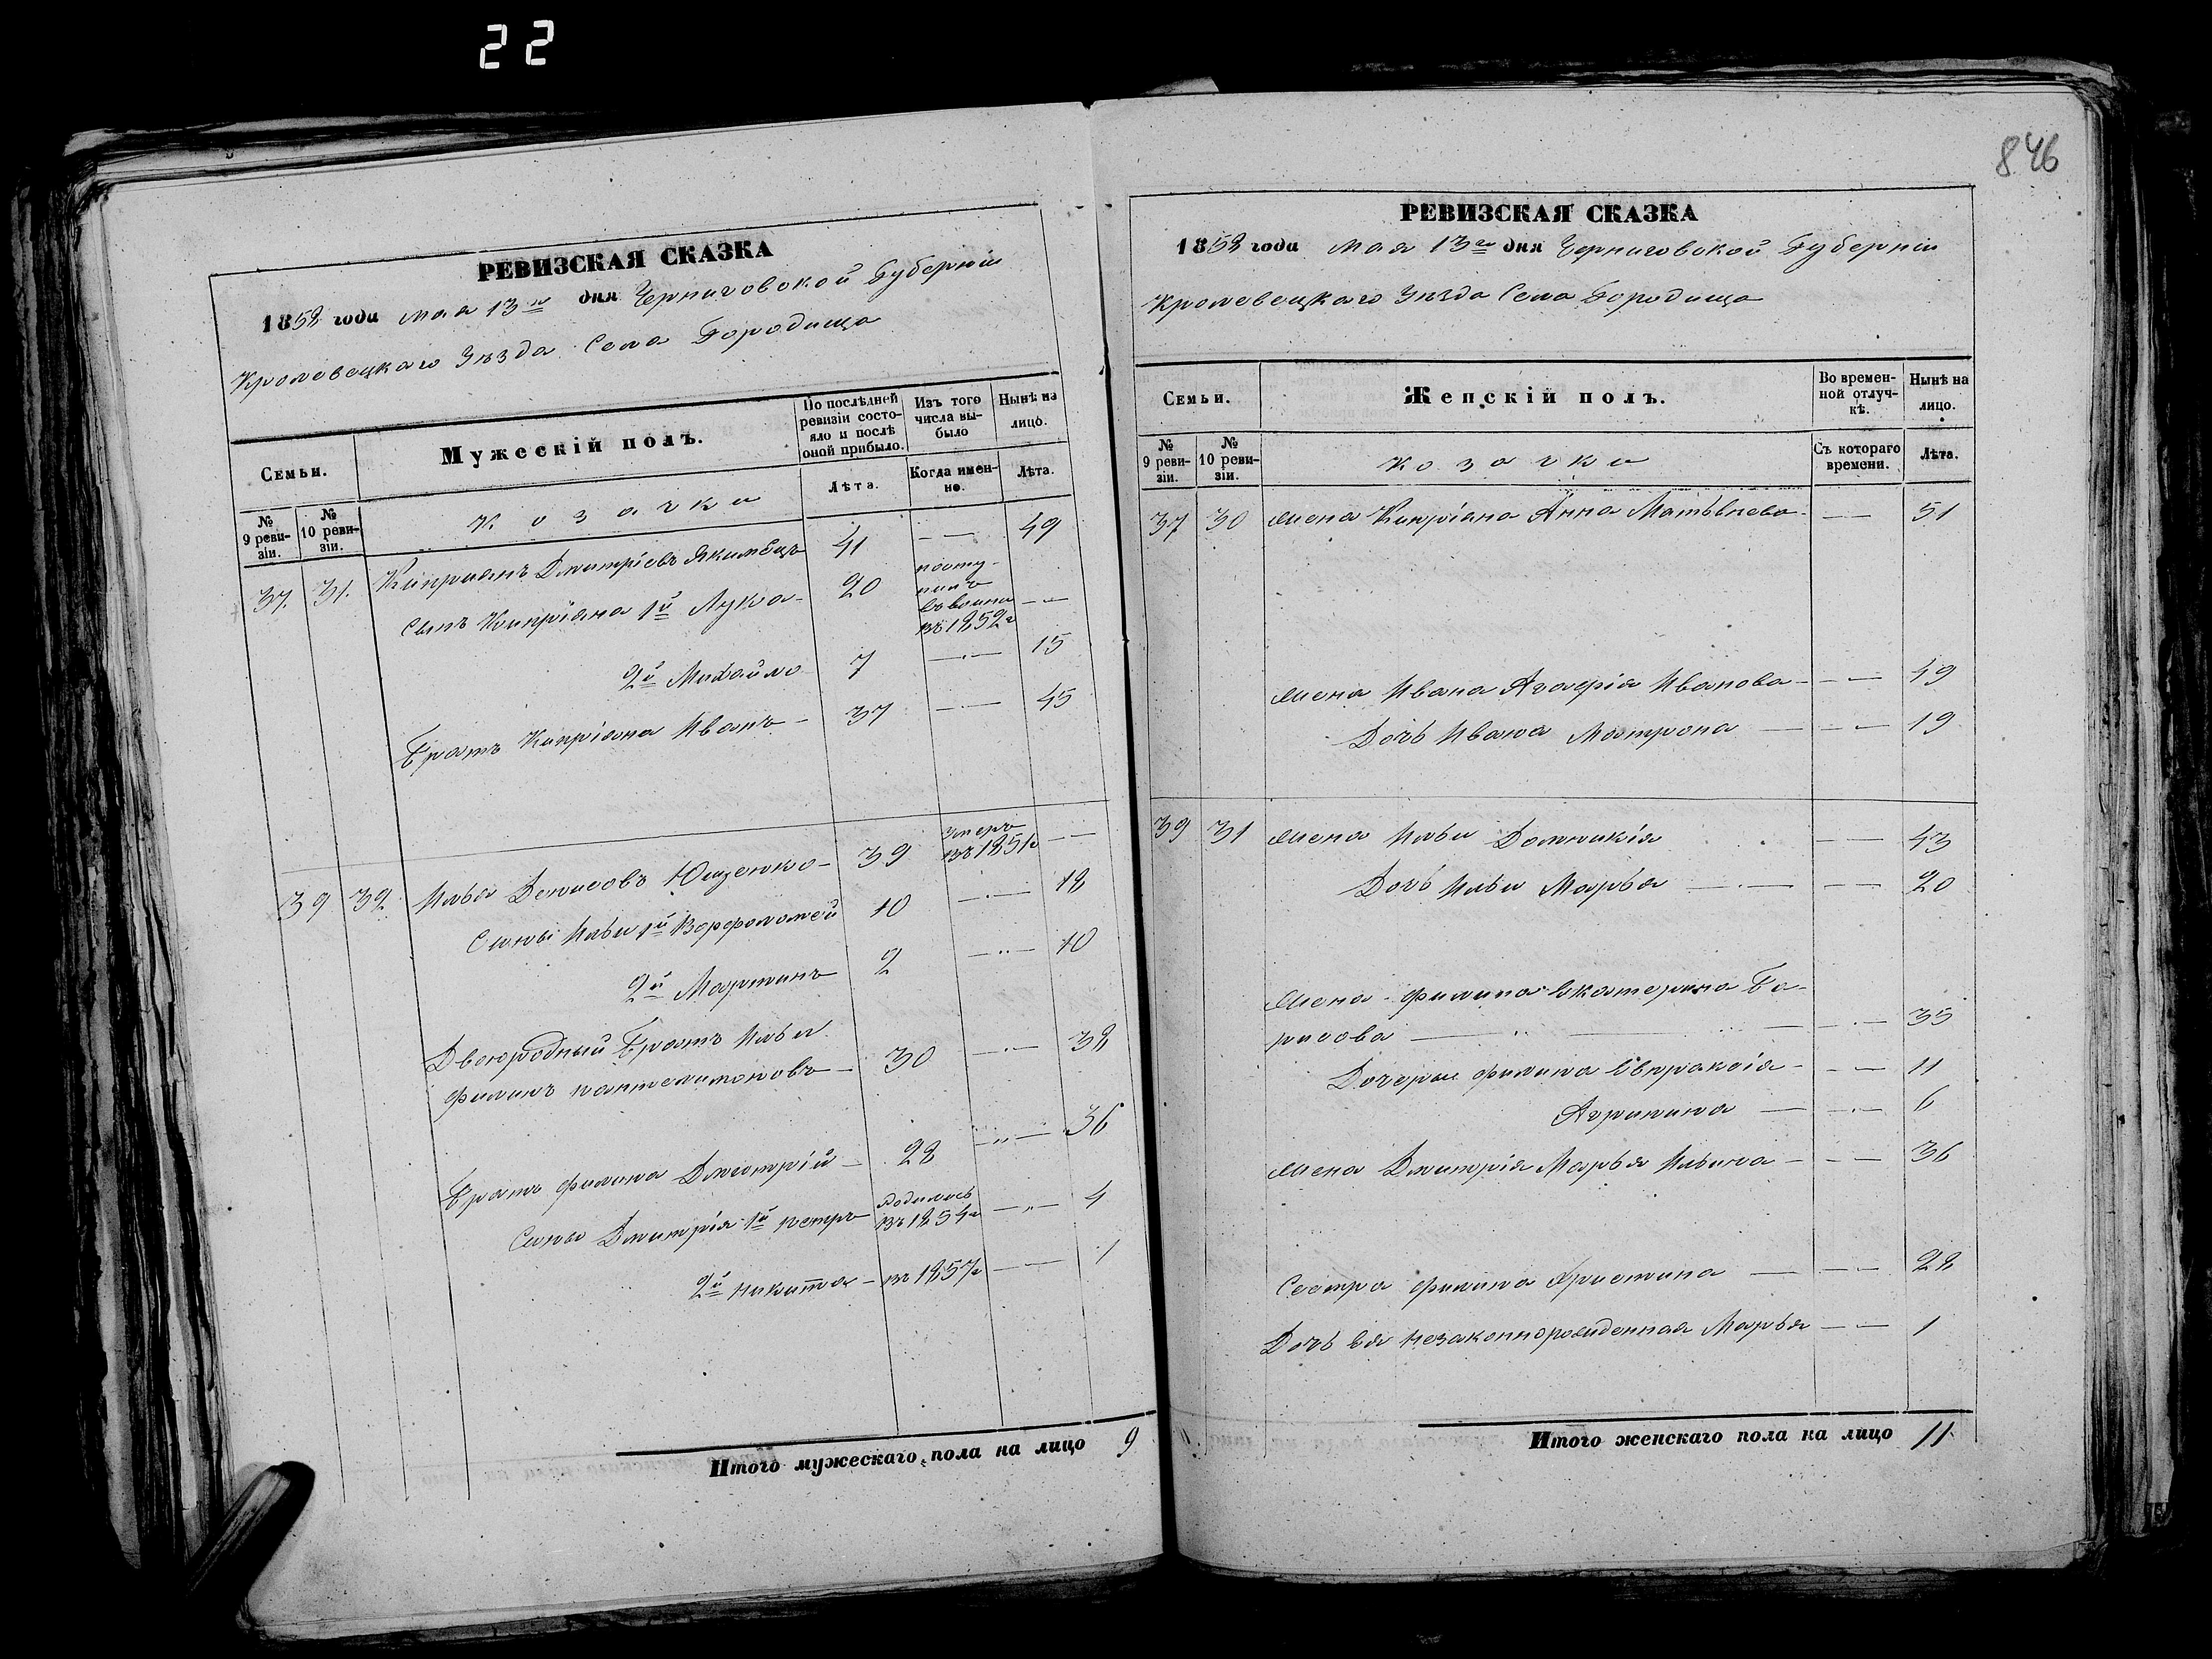 22
846
РЕВИЗСКАЯ СКАЗКА
1858 года мая 13го дня Черниговской Губерніи
Кролевецкаго Уѣзда Села Городища
Семьи.
Мужескій полъ.
По послѣдней ревизіи состояло и послѣ оной прибыло.
Изъ того числа выбыло
Нынѣ на лицо.
№ 9 ревизіи.
№ 10 ревизіи.
Козачки
Лѣта.
Когда именно.
Лѣта.
37. 31. Кипріянъ Дмитріевъ Якимецъ 41 — 49
Сынъ Кипріяна 1й Лука 20 въ 1852г —
2й Михайло 7 — 15
Братъ Кипріяна Иванъ 37 — 45
39 32 Илья Денисовъ Ющенко 39 умеръ въ 1851г —
Сыны Ильи 1й Ворфоломей 10 — 18
2й Мартинъ 2 — 10
Двоюродный Братъ Ильи
Филипъ Пантелимоновъ 30 — 38
Братъ Филипа Дмитрій 28 — 36
Сыны Дмитрія 1й Петръ родился въ 1854г — 4
2й Никита въ 1857г — 1
Итого мужескаго пола на лицо 9
РЕВИЗСКАЯ СКАЗКА
1858 года мая 13го дня Черниговской Губерніи
Кролевецкаго Уѣзда Села Городища
Семьи.
Женскій полъ.
Во временной отлучкѣ.
Нынѣ на лицо.
№ 9 ревизіи.
№ 10 ревизіи.
Козачки
Съ котораго времени.
Лѣта.
37 30 Жена Кипріяна Анна Матвѣева — 51
Жена Ивана Агафія Иванова — 49
Дочь Ивана Матрона — 19
39 31 Жена Ильи Домникія — 43
Дочь Ильи Марья — 20
Жена Филипа Екатерина Бо-
рисова — 35
Дочери Филипа Евпраксія — 11
Агрипина — 6
Жена Дмитрія Марья Ильина — 36
Сестра Филипа Христина — 28
Дочь Ея Незаконнорожденная Марья — 1
Итого женскаго пола на лицо 11